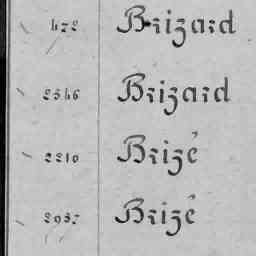 472 Brizard
2546 Brizard
2210 Brizé
2937 Brizé